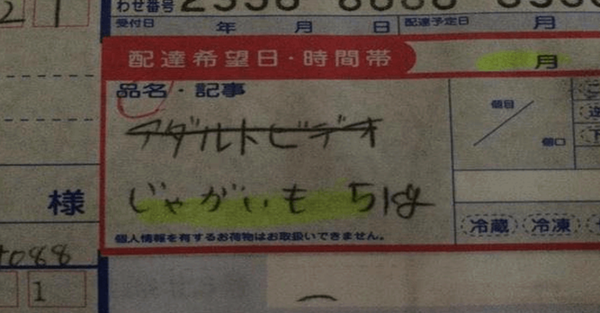 わせ番号
受付日 年 月 日 配達予定日 月
配達希望日・時間帯 月
品名・記事
アダルトビデオ
個目
個口
様 じゃがいも 5kg
冷蔵 冷凍
個人情報を有するお荷物はお取扱いできません。
4088
1